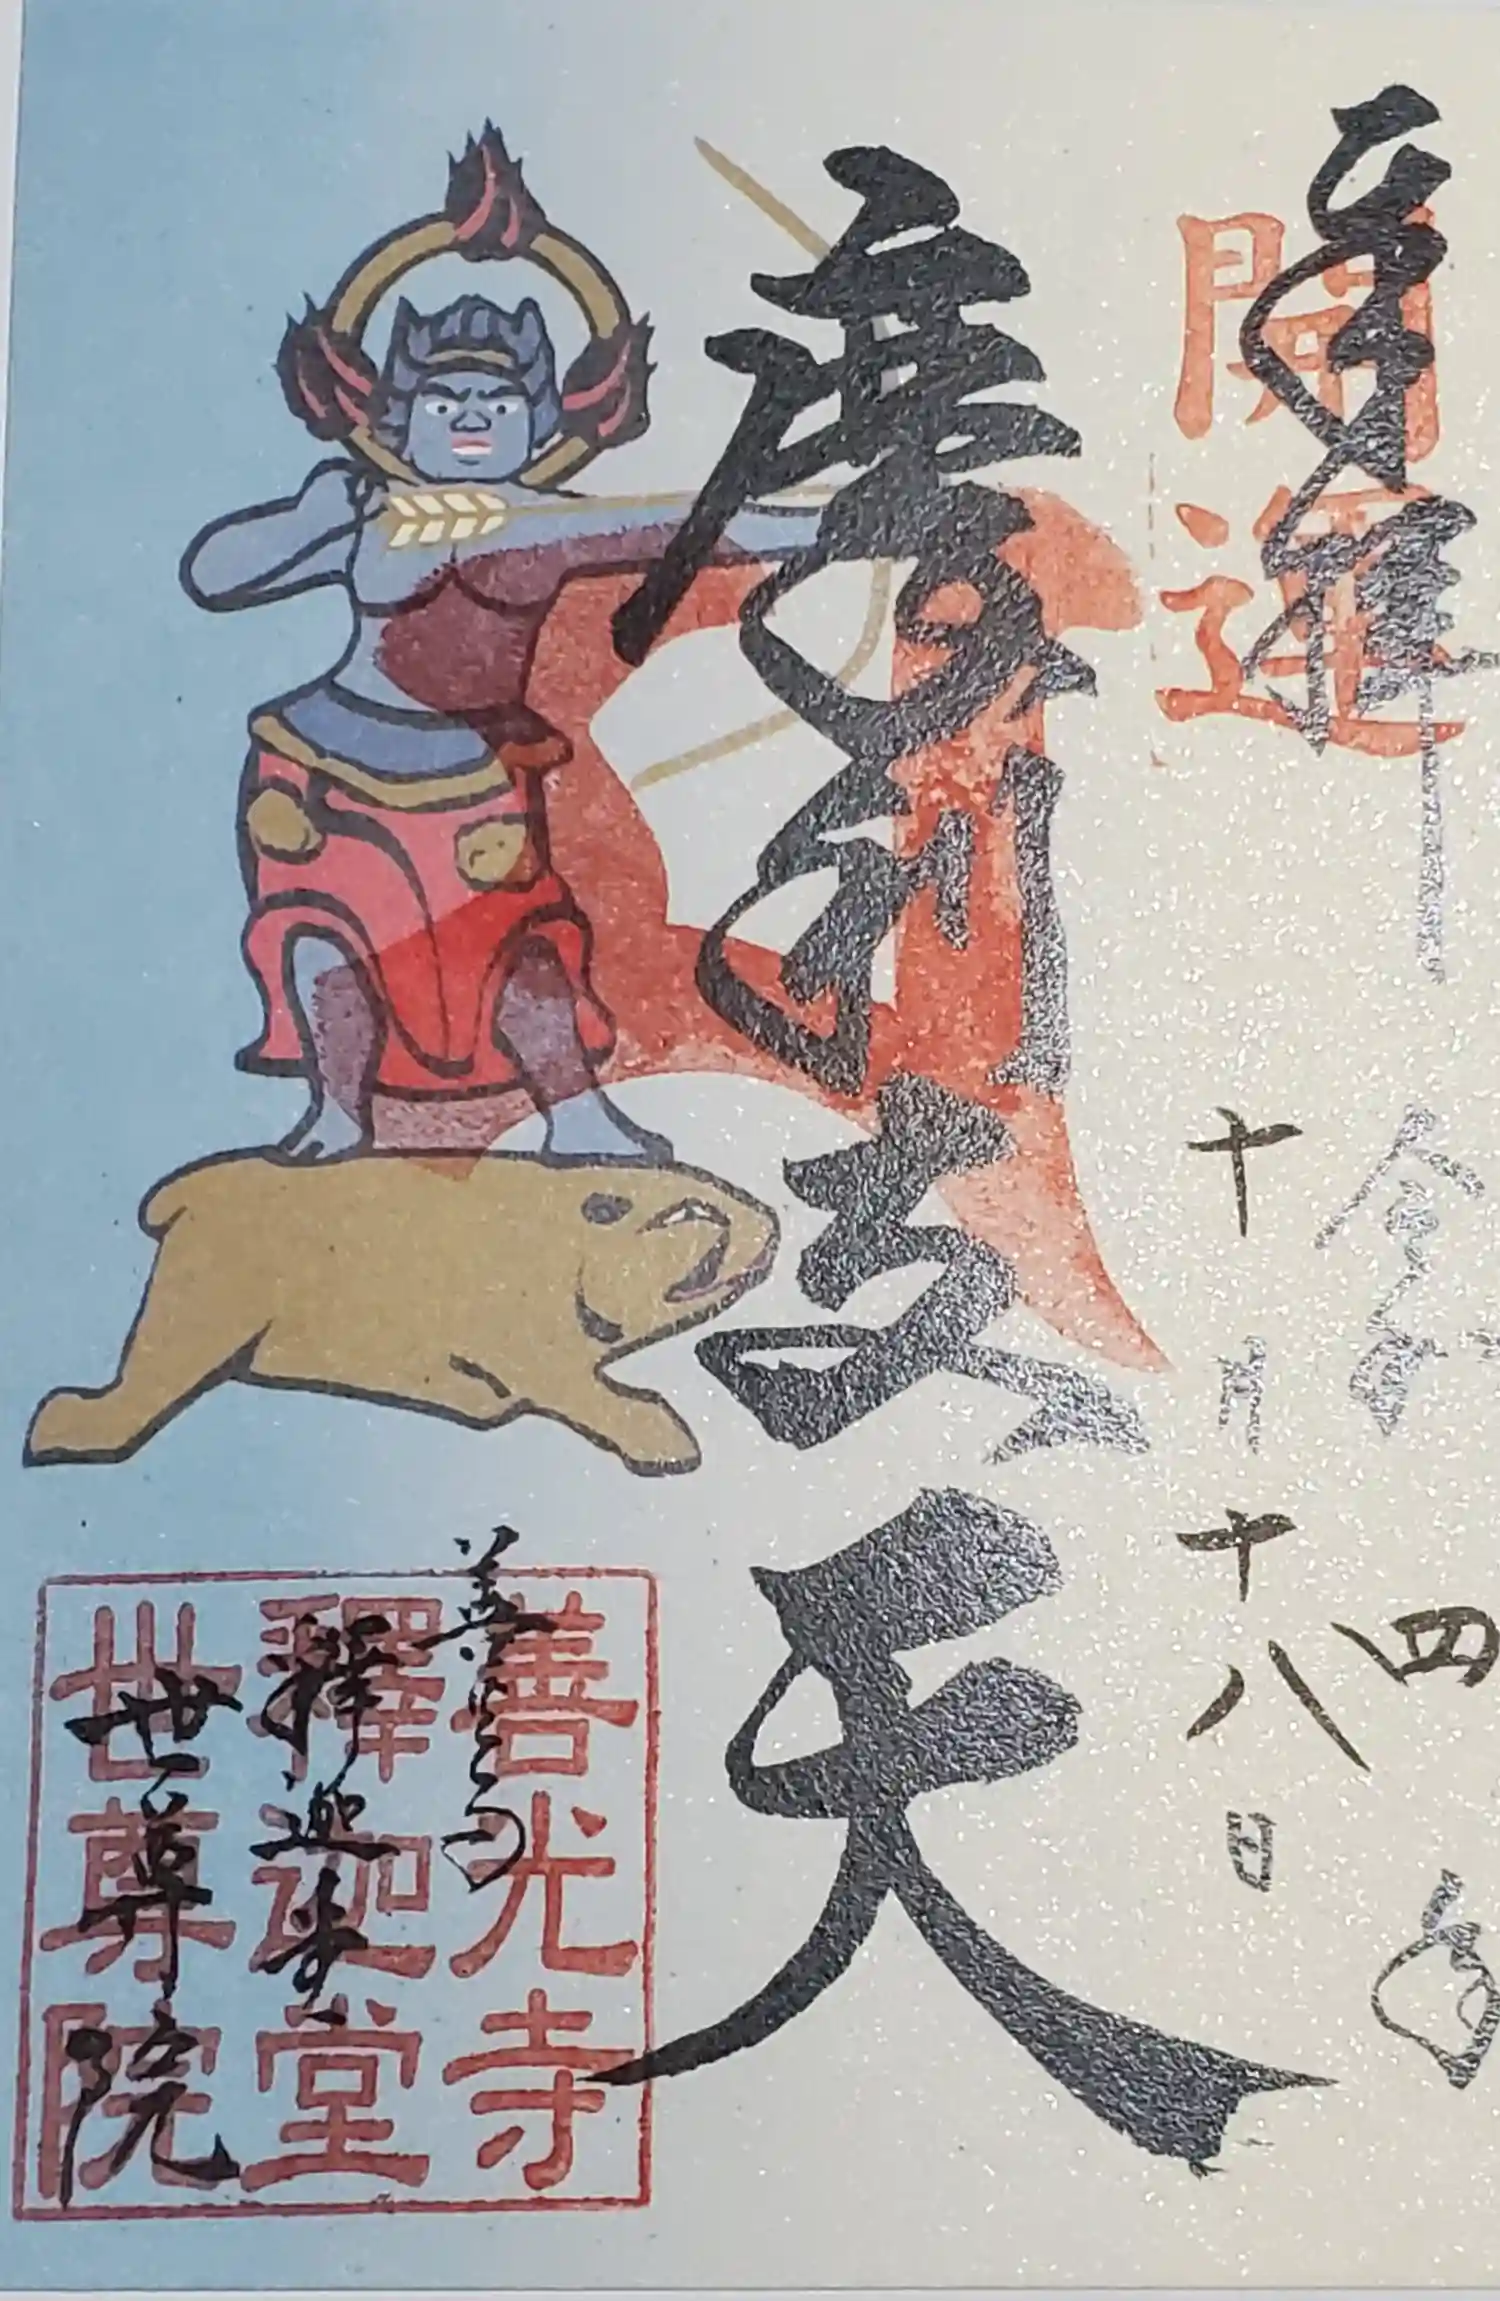 奉拝
開運
令和四年
十月十八日
摩利支天
善光寺
釋迦堂
世尊院
善光寺
釋迦堂
世尊院